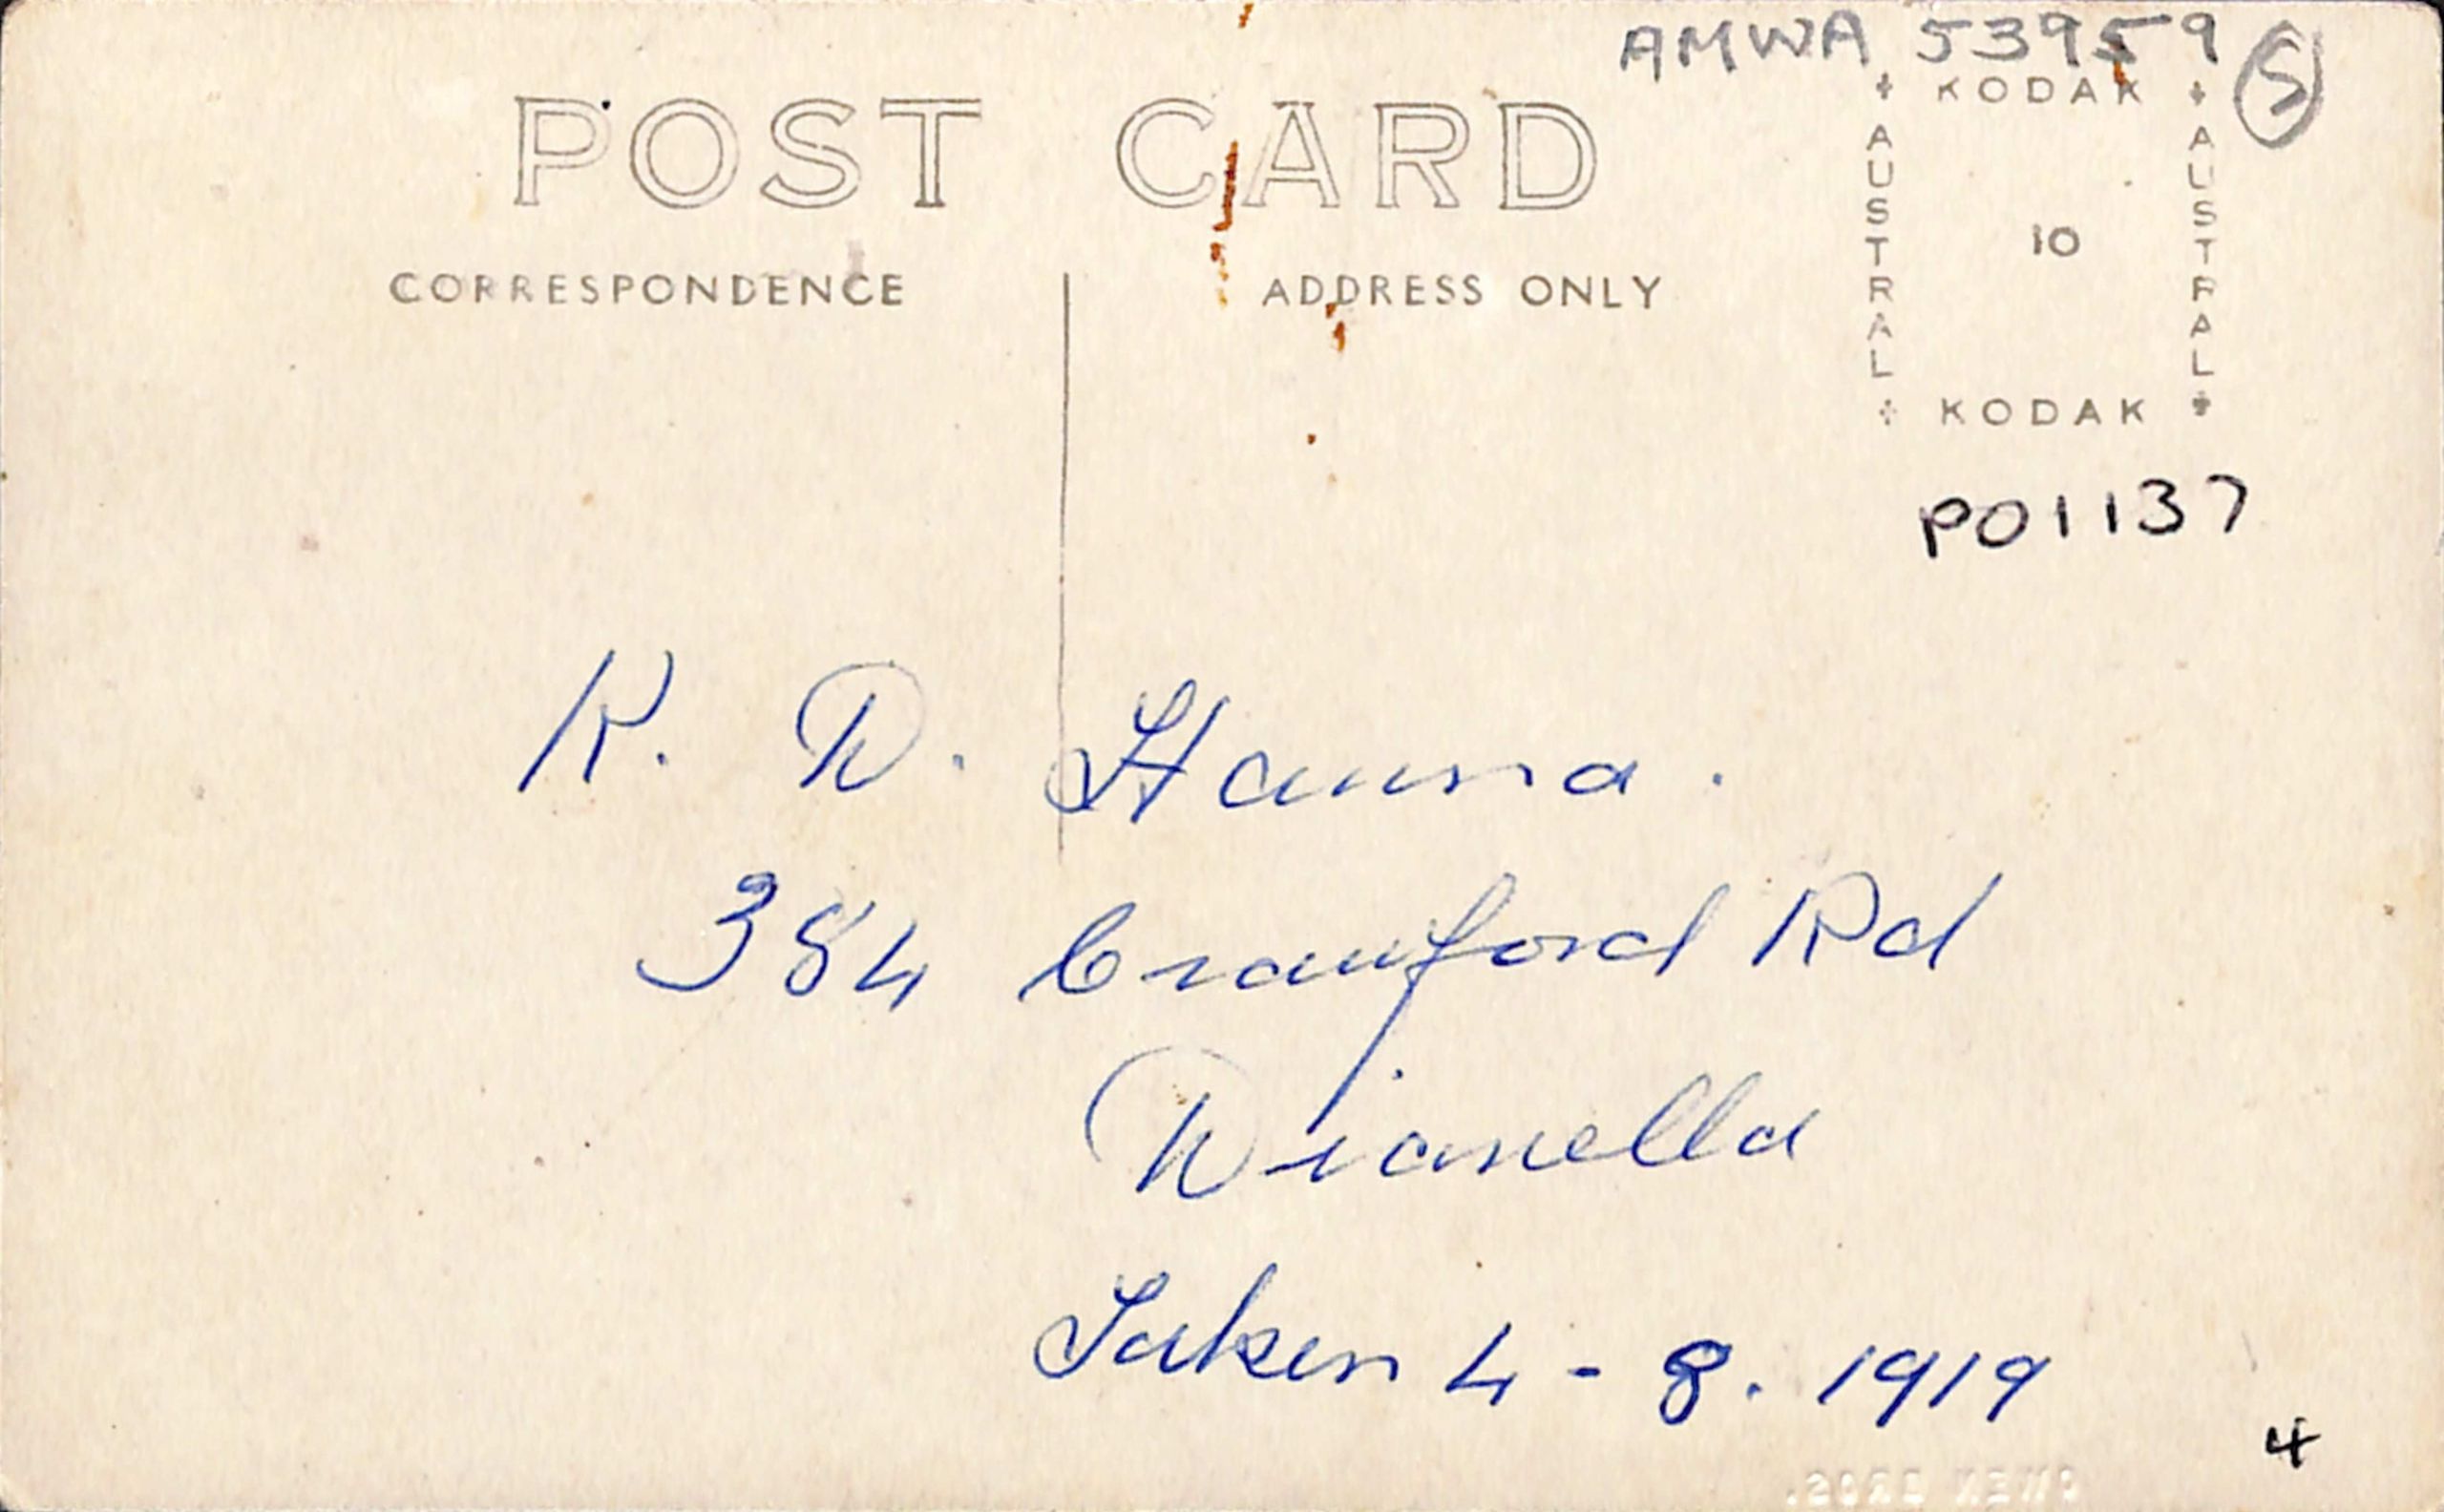 AMWA 53959
5
POST CARD
KODAK
AUSTRAL
10
AUSTRAL
KODAK
CORRESPONDENCE
ADDRESS ONLY
P01137
K. D. Hanna.
384 Crawford Rd
Dianella
Taken 4 - 8. 1919
4
BROS.